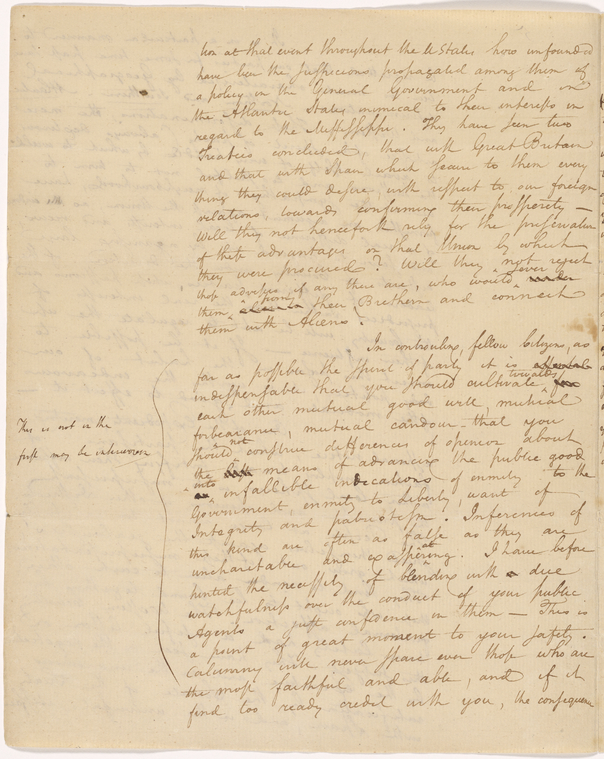 tion at that event throughout the U States how unfounded
have been the suspicions propagated among them of
a policy in the General Government and on
the Atlantic States inimical to their interests in
regard to the Mississippi. They have seen two
Treaties concluded, that with Great Britain
and that with Spain which secure to them every
thing they could desire with respect to our foreign
relations, towards confirming their prosperity —
Will they not henceforth rely for the preservation
of these advantages on that Union by which
they were procured? Will they not reject
those advisers, if any there are, who would sever
them from their Brethren and connect
them with Aliens?
In controuling, fellow Citizens, as
far as possible the spirit of party it is
indispensable that you should cultivate towards
each other mutual good will, mutual
forbearance, mutual candour—that you
should not construe differences of opinion about
the means of advancing the public good
into infallible indications of enmity to the
Government, enmity to Liberty, want of
Integrity and patriotism. Inferences of
this kind are often as false as they are
uncharitable and exasperating. I have before
hinted the necessity of blending with due
watchfulness over the conduct of your public
Agents a just confidence in them — This is
a point of great moment to your safety.
Calumny will never spare even those who are
the most faithful and able, and if it
find too ready credit with you, the consequence
This is not in the
first may be interwoven